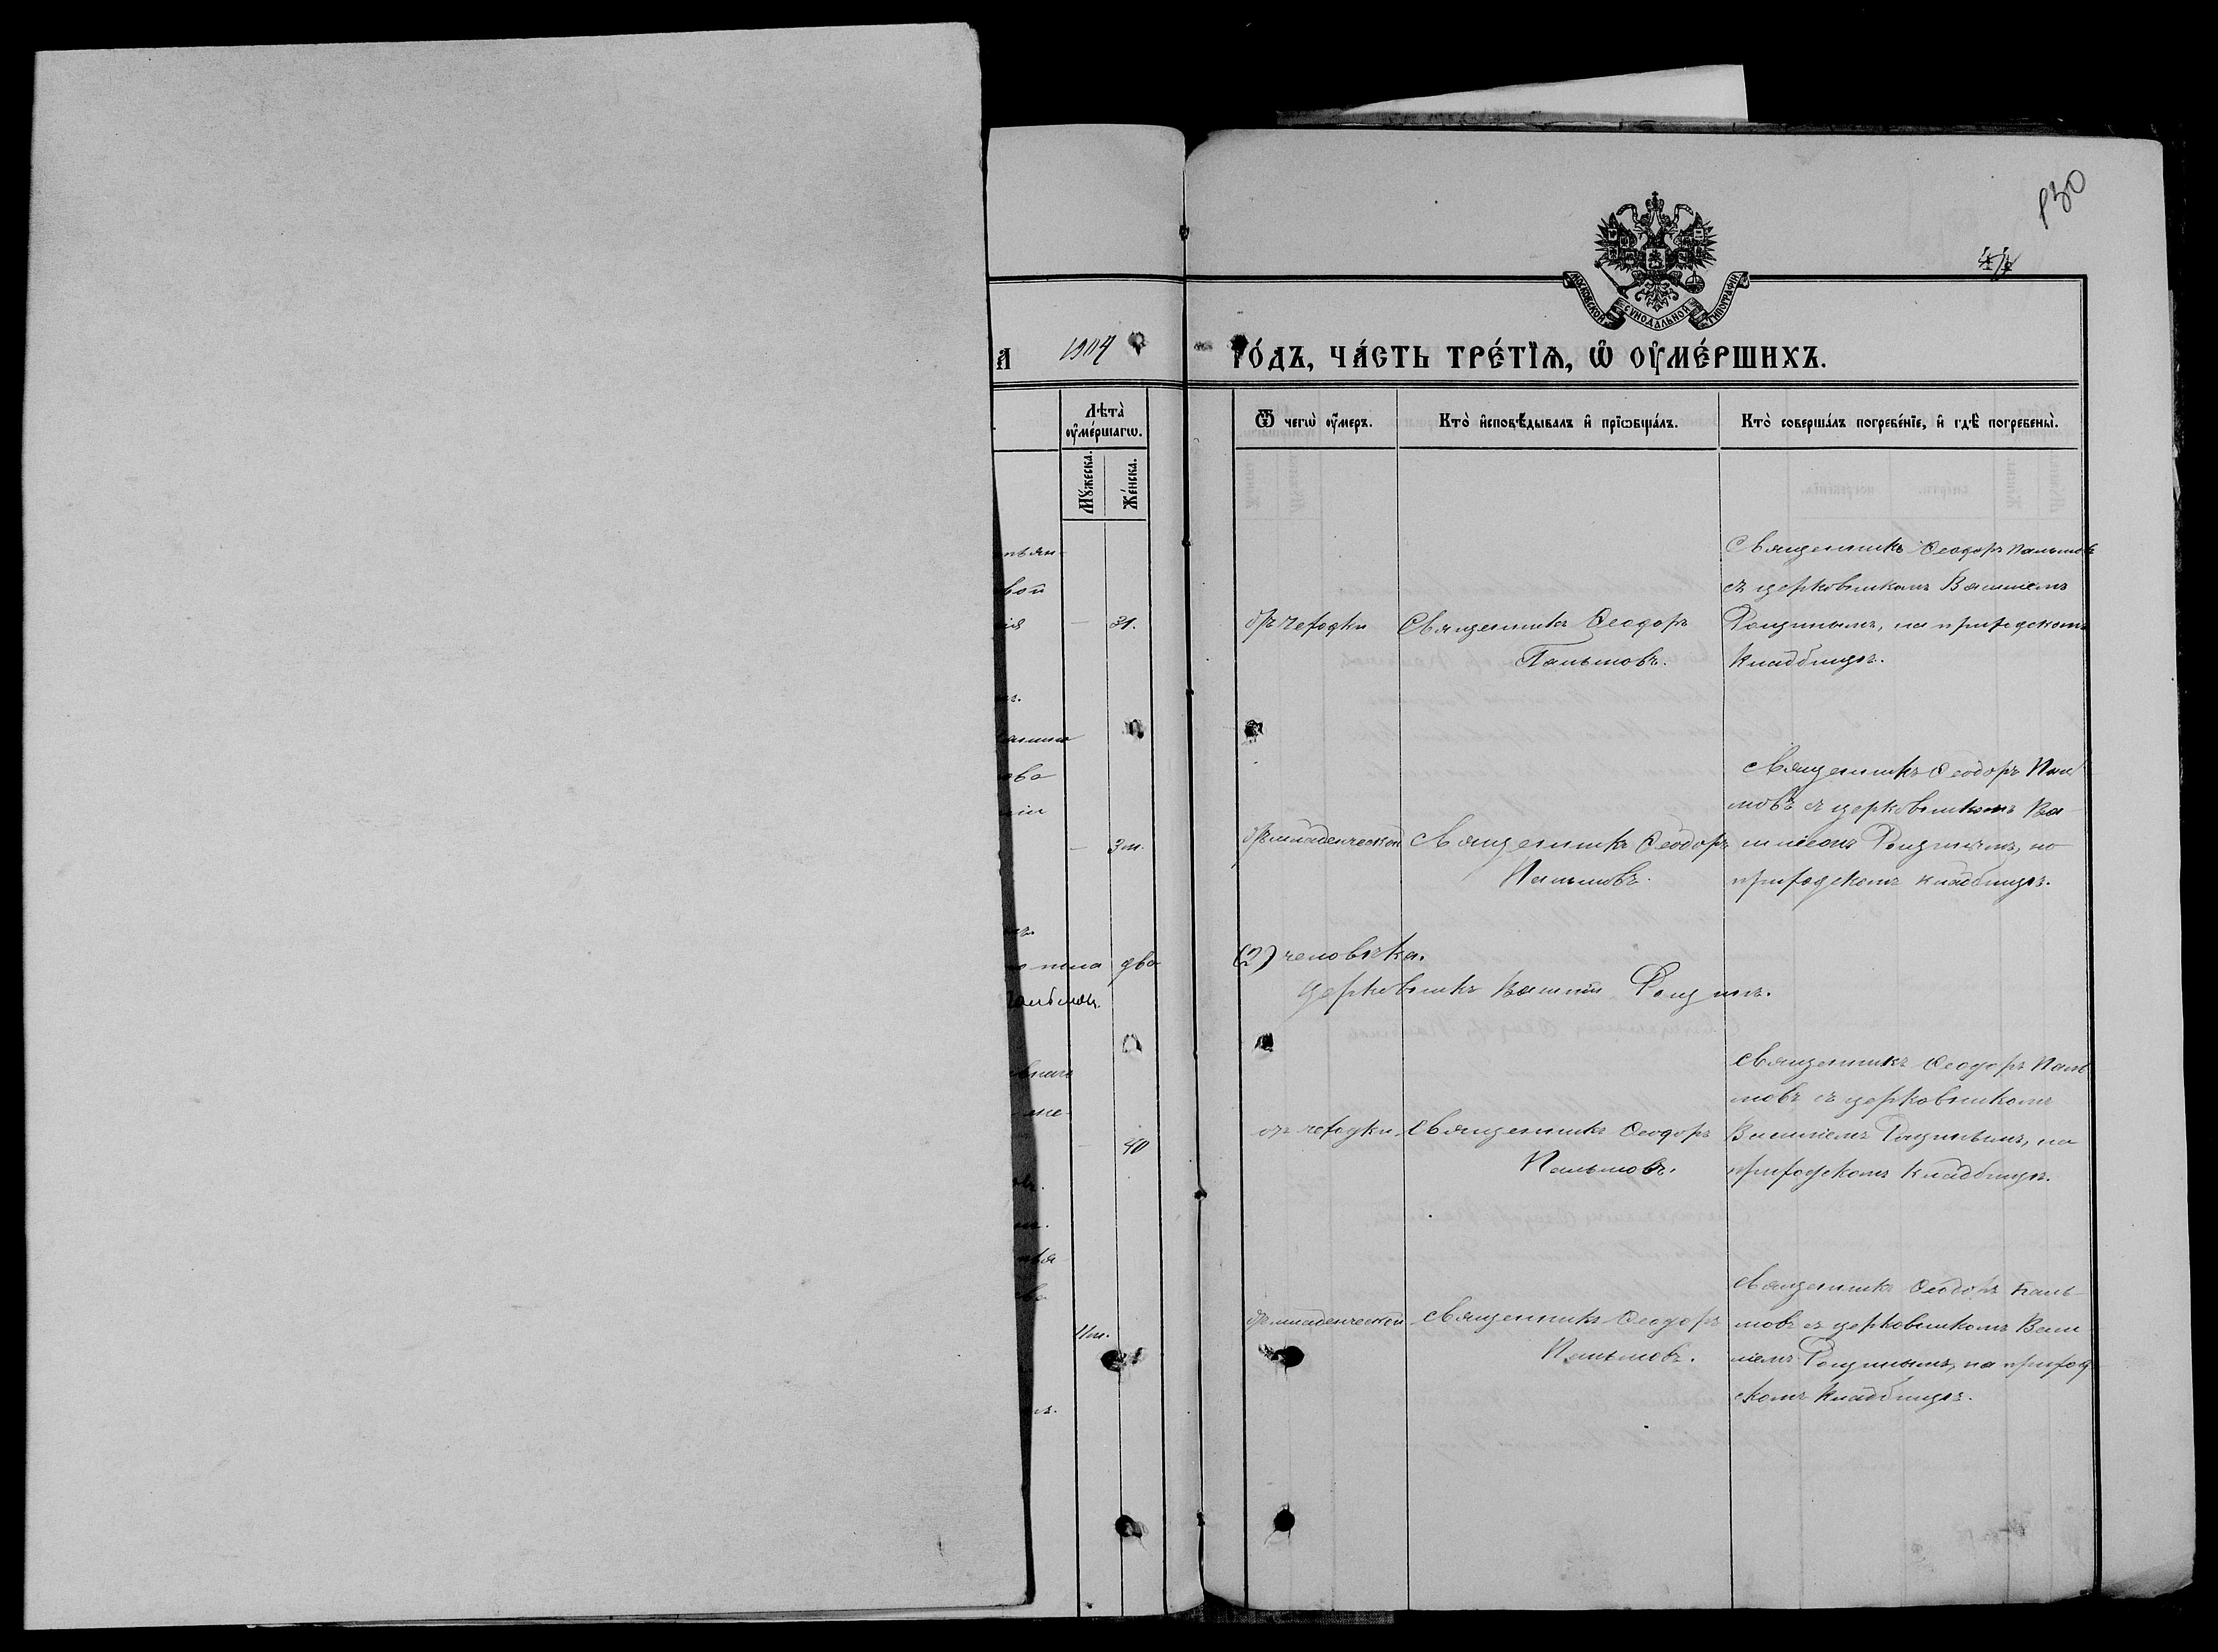 130
МОСКОВСКОЙ СѴНОДАЛЬНОЙ ТИПОГРАФІИ
1904
го́дъ, ча́сть тре́тїѧ, ѡ҆ ᲂу҆ме́ршихъ.
Лѣта̀
ᲂу҆ме́ршагѡ.
Мꙋ́жеска.
Же́нска.
Ѿ чегѡ̀ ᲂу҆́меръ.
Кто̀ и҆сповѣ́дывалъ и҆ прїѡбща́лъ.
Кто̀ соверша́лъ погребе́нїе, и҆ гдѣ̀ погребены̀.
31.
отъ чехотки
Священникъ Ѳеодоръ
Пальмовъ.
Священникъ Ѳеодоръ Пальмовъ
съ церковникомъ Василіемъ
Рощинымъ, на приходскомъ
кладбищѣ.
3 м.
отъ младенческой
Священникъ Ѳеодоръ
Пальмовъ.
Священникъ Ѳеодоръ Паль
мовъ съ церковникомъ Ва-
силіемъ Рощинымъ, на
приходскомъ кладбищѣ.
пола два
(2) человѣка.
Пальмовъ.
Церковникъ Василій Рощинъ.
40
отъ чехотки.
Священникъ Ѳеодоръ
Пальмовъ.
Священникъ Ѳеодоръ Паль
мовъ съ церковникомъ
Василіемъ Рощинымъ, на
приходскомъ кладбищѣ.
11 м.
отъ младенческой
Священникъ Ѳеодоръ
Пальмовъ.
Священникъ Ѳеодоръ Паль-
мовъ съ церковникомъ Васи
ліемъ Рощинымъ, на приход
скомъ кладбищѣ.